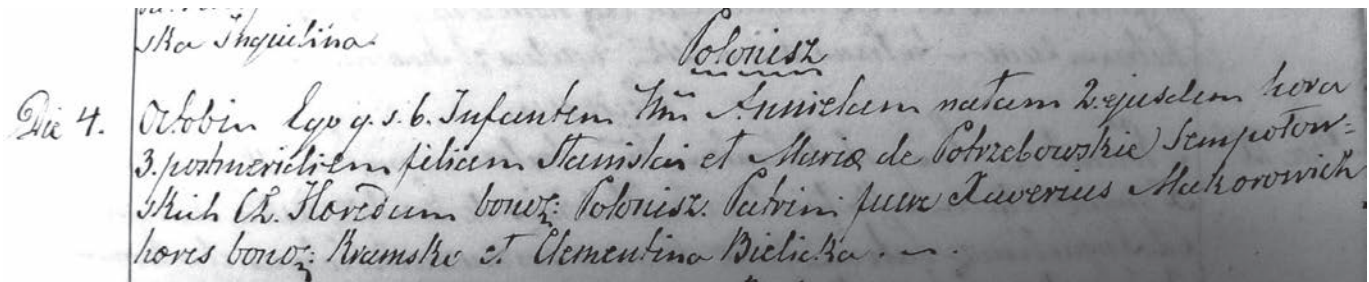 ska Inquilina
Polonisz
Die 4. Octobin Ego q. s. b. Infantem Anielam natam 2. ejusdem hora
3. postmeridiem filiam Stanislai et Mariæ de Potrzebowskie Sempołow=
skich Ch. Hæredum bonoz: Polonisz. Patrini fuere Xaverius Makorowich
hæres bonoz: Kramsko et Clementina Bielicka.